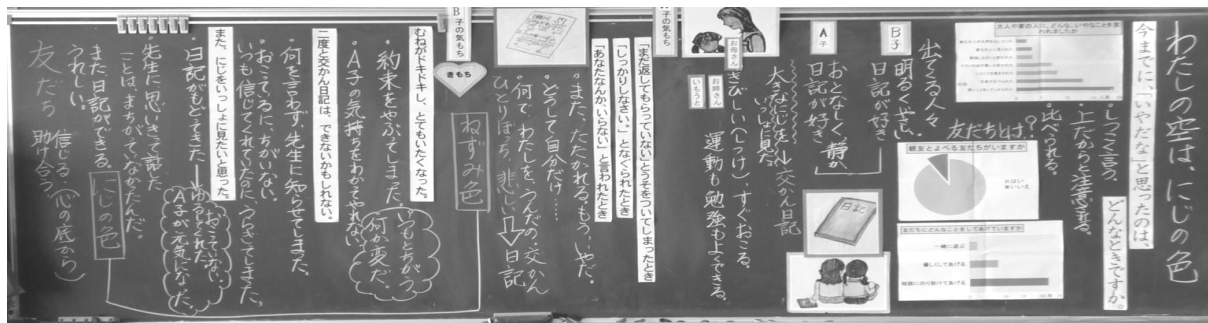 わたしの空は、にじの色
今までに、「いやだな」と思ったのは、
どんなときですか。
大人や家の人に、どんな、いやなことを言われましたか
・しつこく言う。
・上だからと注意する。
・比べられる。
友だちとは、?
親友とよべる友だちがいますか
はい
いいえ
友だちにどんなことをしてあげていますか
一緒に遊ぶ
優しくしてあげる
相談にのり助けてあげる
出てくる人々
B子
明るく
日記が好き
A子
おとなしく、静か
日記が好き
大きなにじを
いっしょに見た。
交かん日記
日記
お母さん
きびしい(しつけ)、すぐおこる。
お姉さん
いもうと
運動も勉強もよくできる。
B子の気もち
「まだ返してもらっていない」とうそをついてしまったとき
「しっかりしなさい。」となぐられたとき
「あなたなんか、いらない」と言われたとき
・また、たたかれる。もう、いやだ。
・どうして自分だけ……
・何で、わたしを、うんだの。
ひとりぼち、悲しい
交かん
日記
B子の気もち
きもち
ねずみ色
むねがドキドキし、とてもいたくなった。
・約束をやぶってしまった
・A子の気持ちをわかってやれない
いつもとちがう。
何か変だ。
二度と交かん日記は、できないかもしれない。
・何を言わず先生に知らせてしまった。
・おこてるに、ちがいない。
いつも信じてくれていたのに、うらぎてしまた。
また、にじをいっしょに見たいと思った。
・日記がもどてきた
おこていない。
ゆるしてくれた。
A子が元気になた。
先生に思いきて話した
ことは、まちがていなかたんだ。
また日記ができる。
うれしい。
にじの色
友だち
信じる
助け合う
(心の底から)